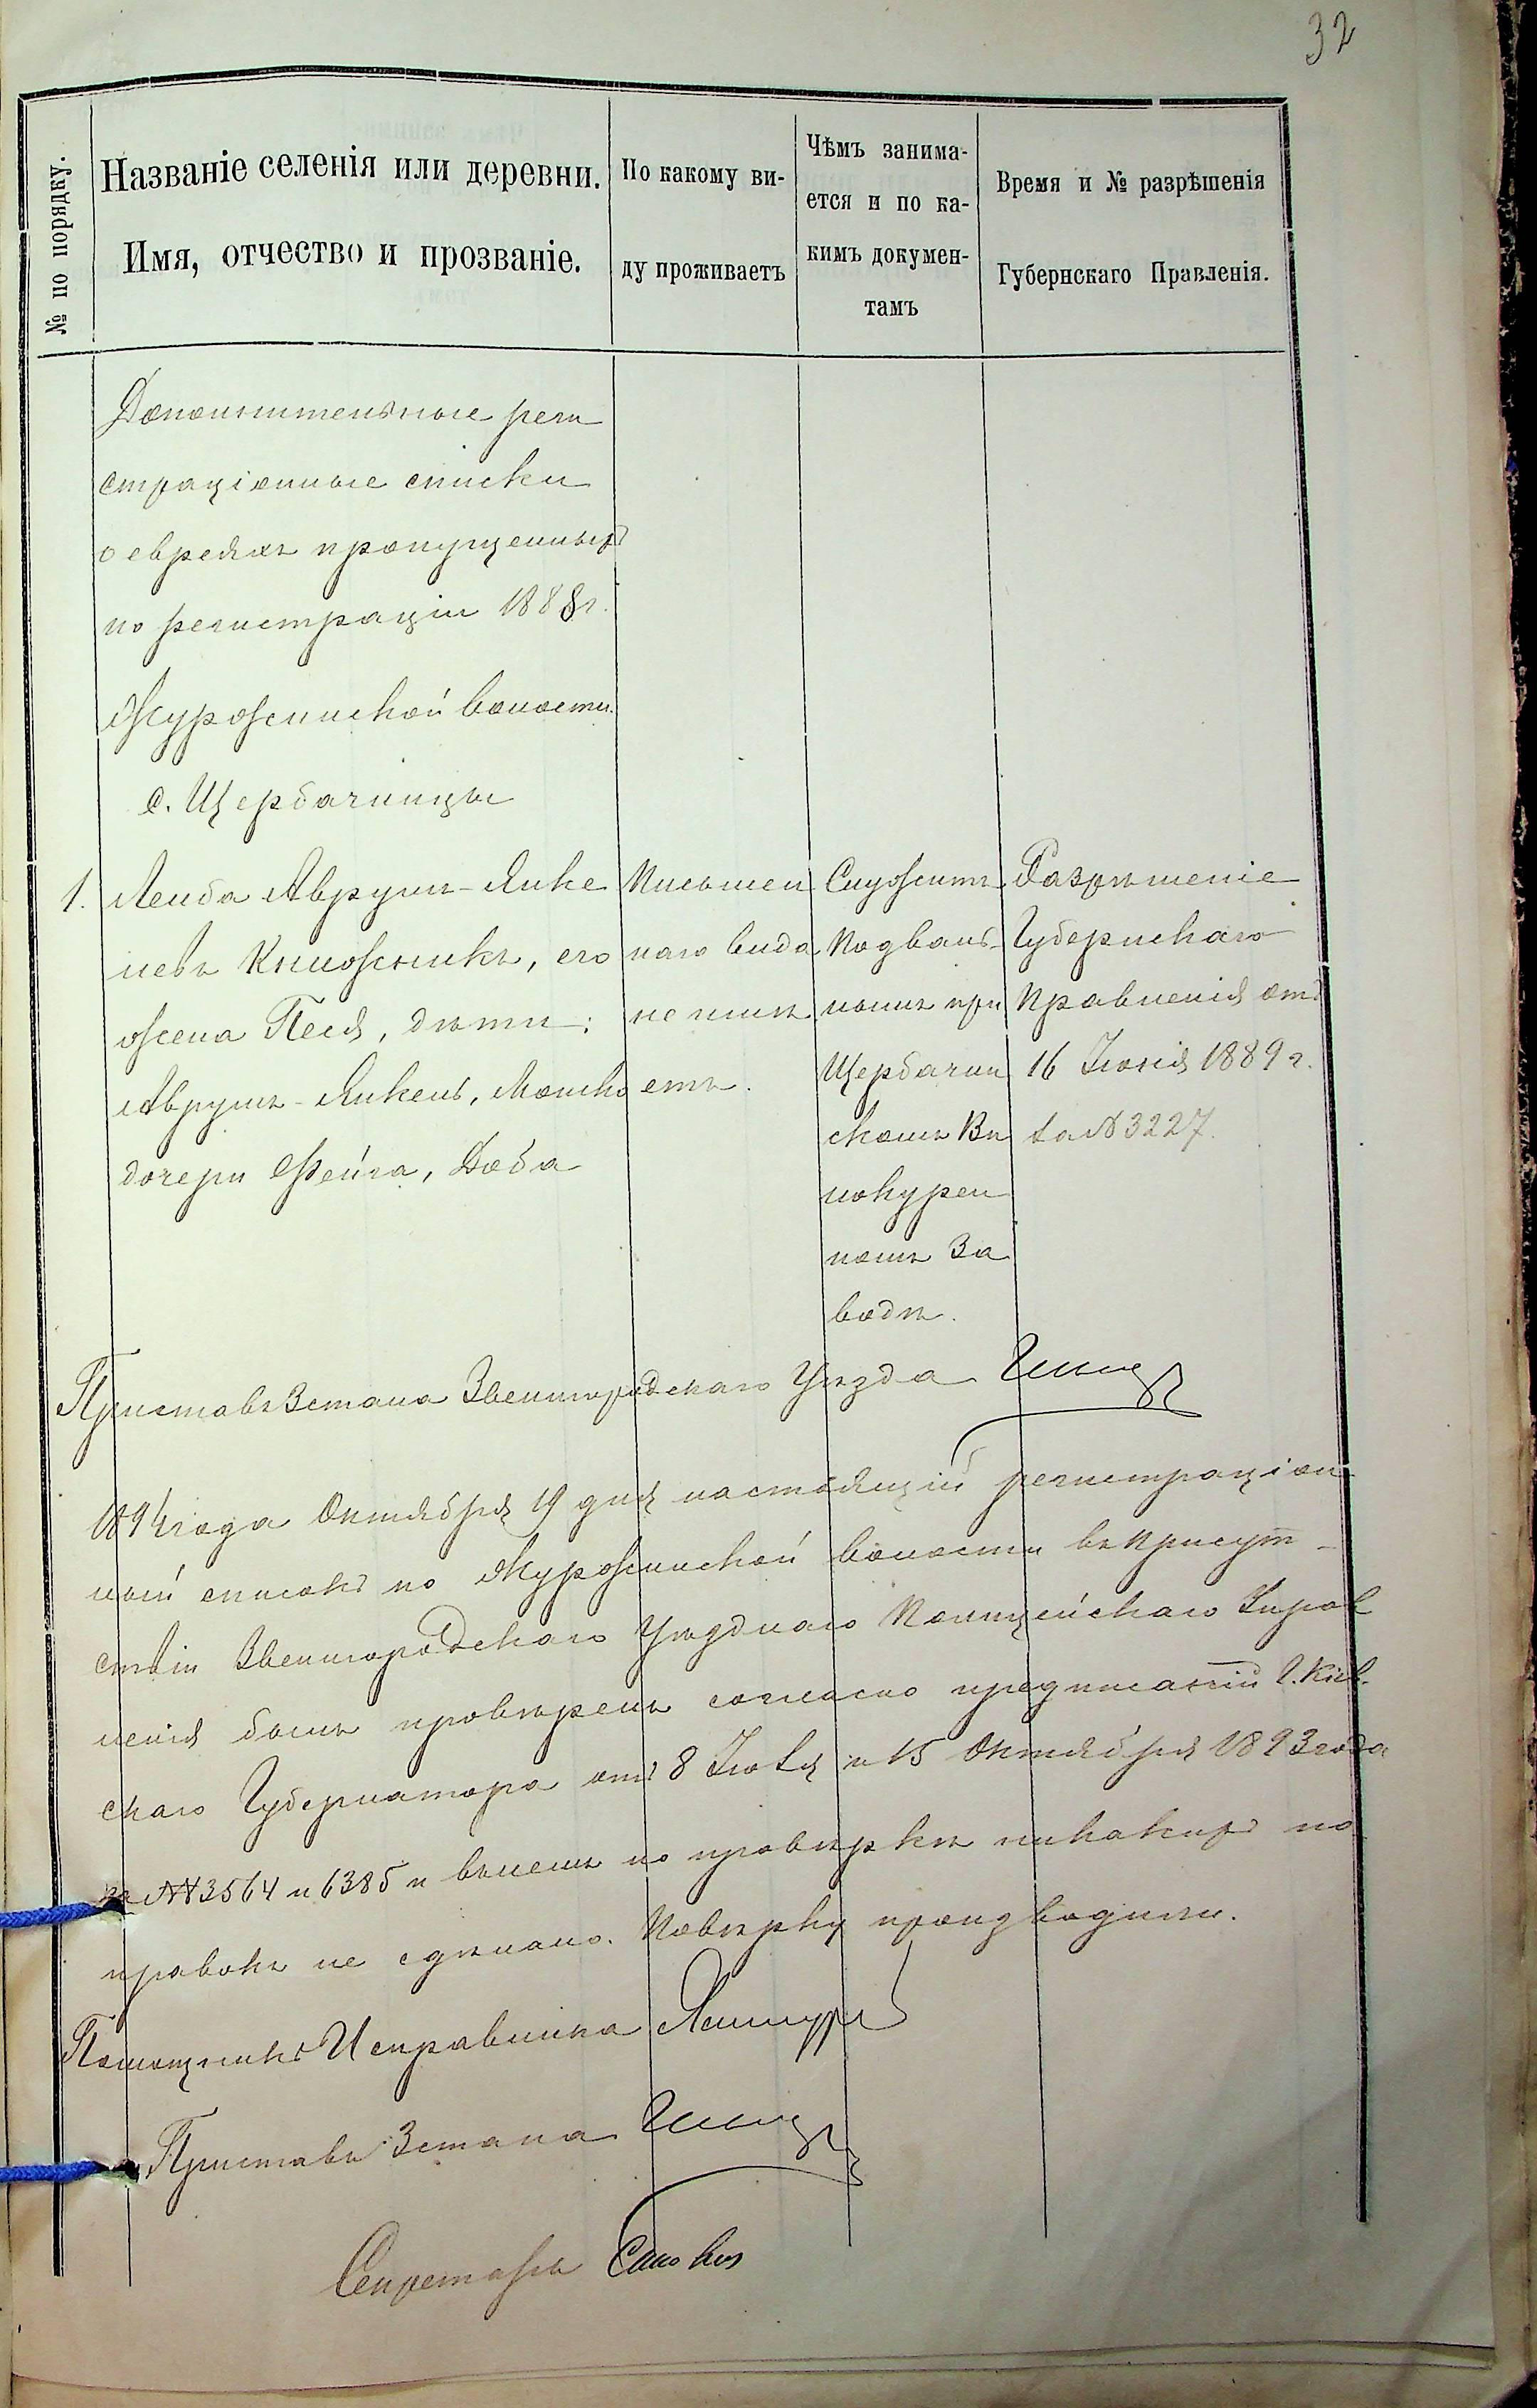 32
№ по порядку.
Названіе селенія или деревни.
Имя, отчество и прозваніе.
По какому ви-
ду проживаетъ
Чѣмъ занима-
ется и по ка-
кимъ докумен-
тамъ
Время и № разрѣшенія
Губернскаго Правленія.
Дополнительные реги
страціонные списки
о евреяхъ пропущенныхъ
по регистраціи 1888 г.
Журжинской волости.
с. Щербачинцы
1.
Лейба Аврумъ-Янке
левъ Книжникъ, его
жена Песя, дѣти:
Аврумъ-Янкель, Мошко
дочери Фейга, Доба
Письмен
наго вида
не имѣ
етъ.
Служитъ
Подваль-
нымъ при
Щербачин
скомъ Ви
нокурен
номъ За
водѣ.
Разрѣшеніе
Губернскаго
Правленія отъ
16 Іюня 1889 г.
за № 3227.
Приставъ 3 стана Звенигородскаго Уѣзда
1894 года Октября 19 дня настоящій регистраціон
ный списокъ по Журжинской волости въ присут-
ствіи Звенигородскаго Уѣзднаго Полицейскаго Управ
ленія былъ провѣренъ согласно предписаній Г. Кіев-
скаго Губернатора отъ 8 Іюля и 15 Октября 1893 года
за №№ 3564 и 6385 и въ немъ по провѣркѣ никакихъ по
правокъ не сдѣлано. Повѣрку производили.
Помощникъ Исправника
Приставъ 3 стана
Секретарь